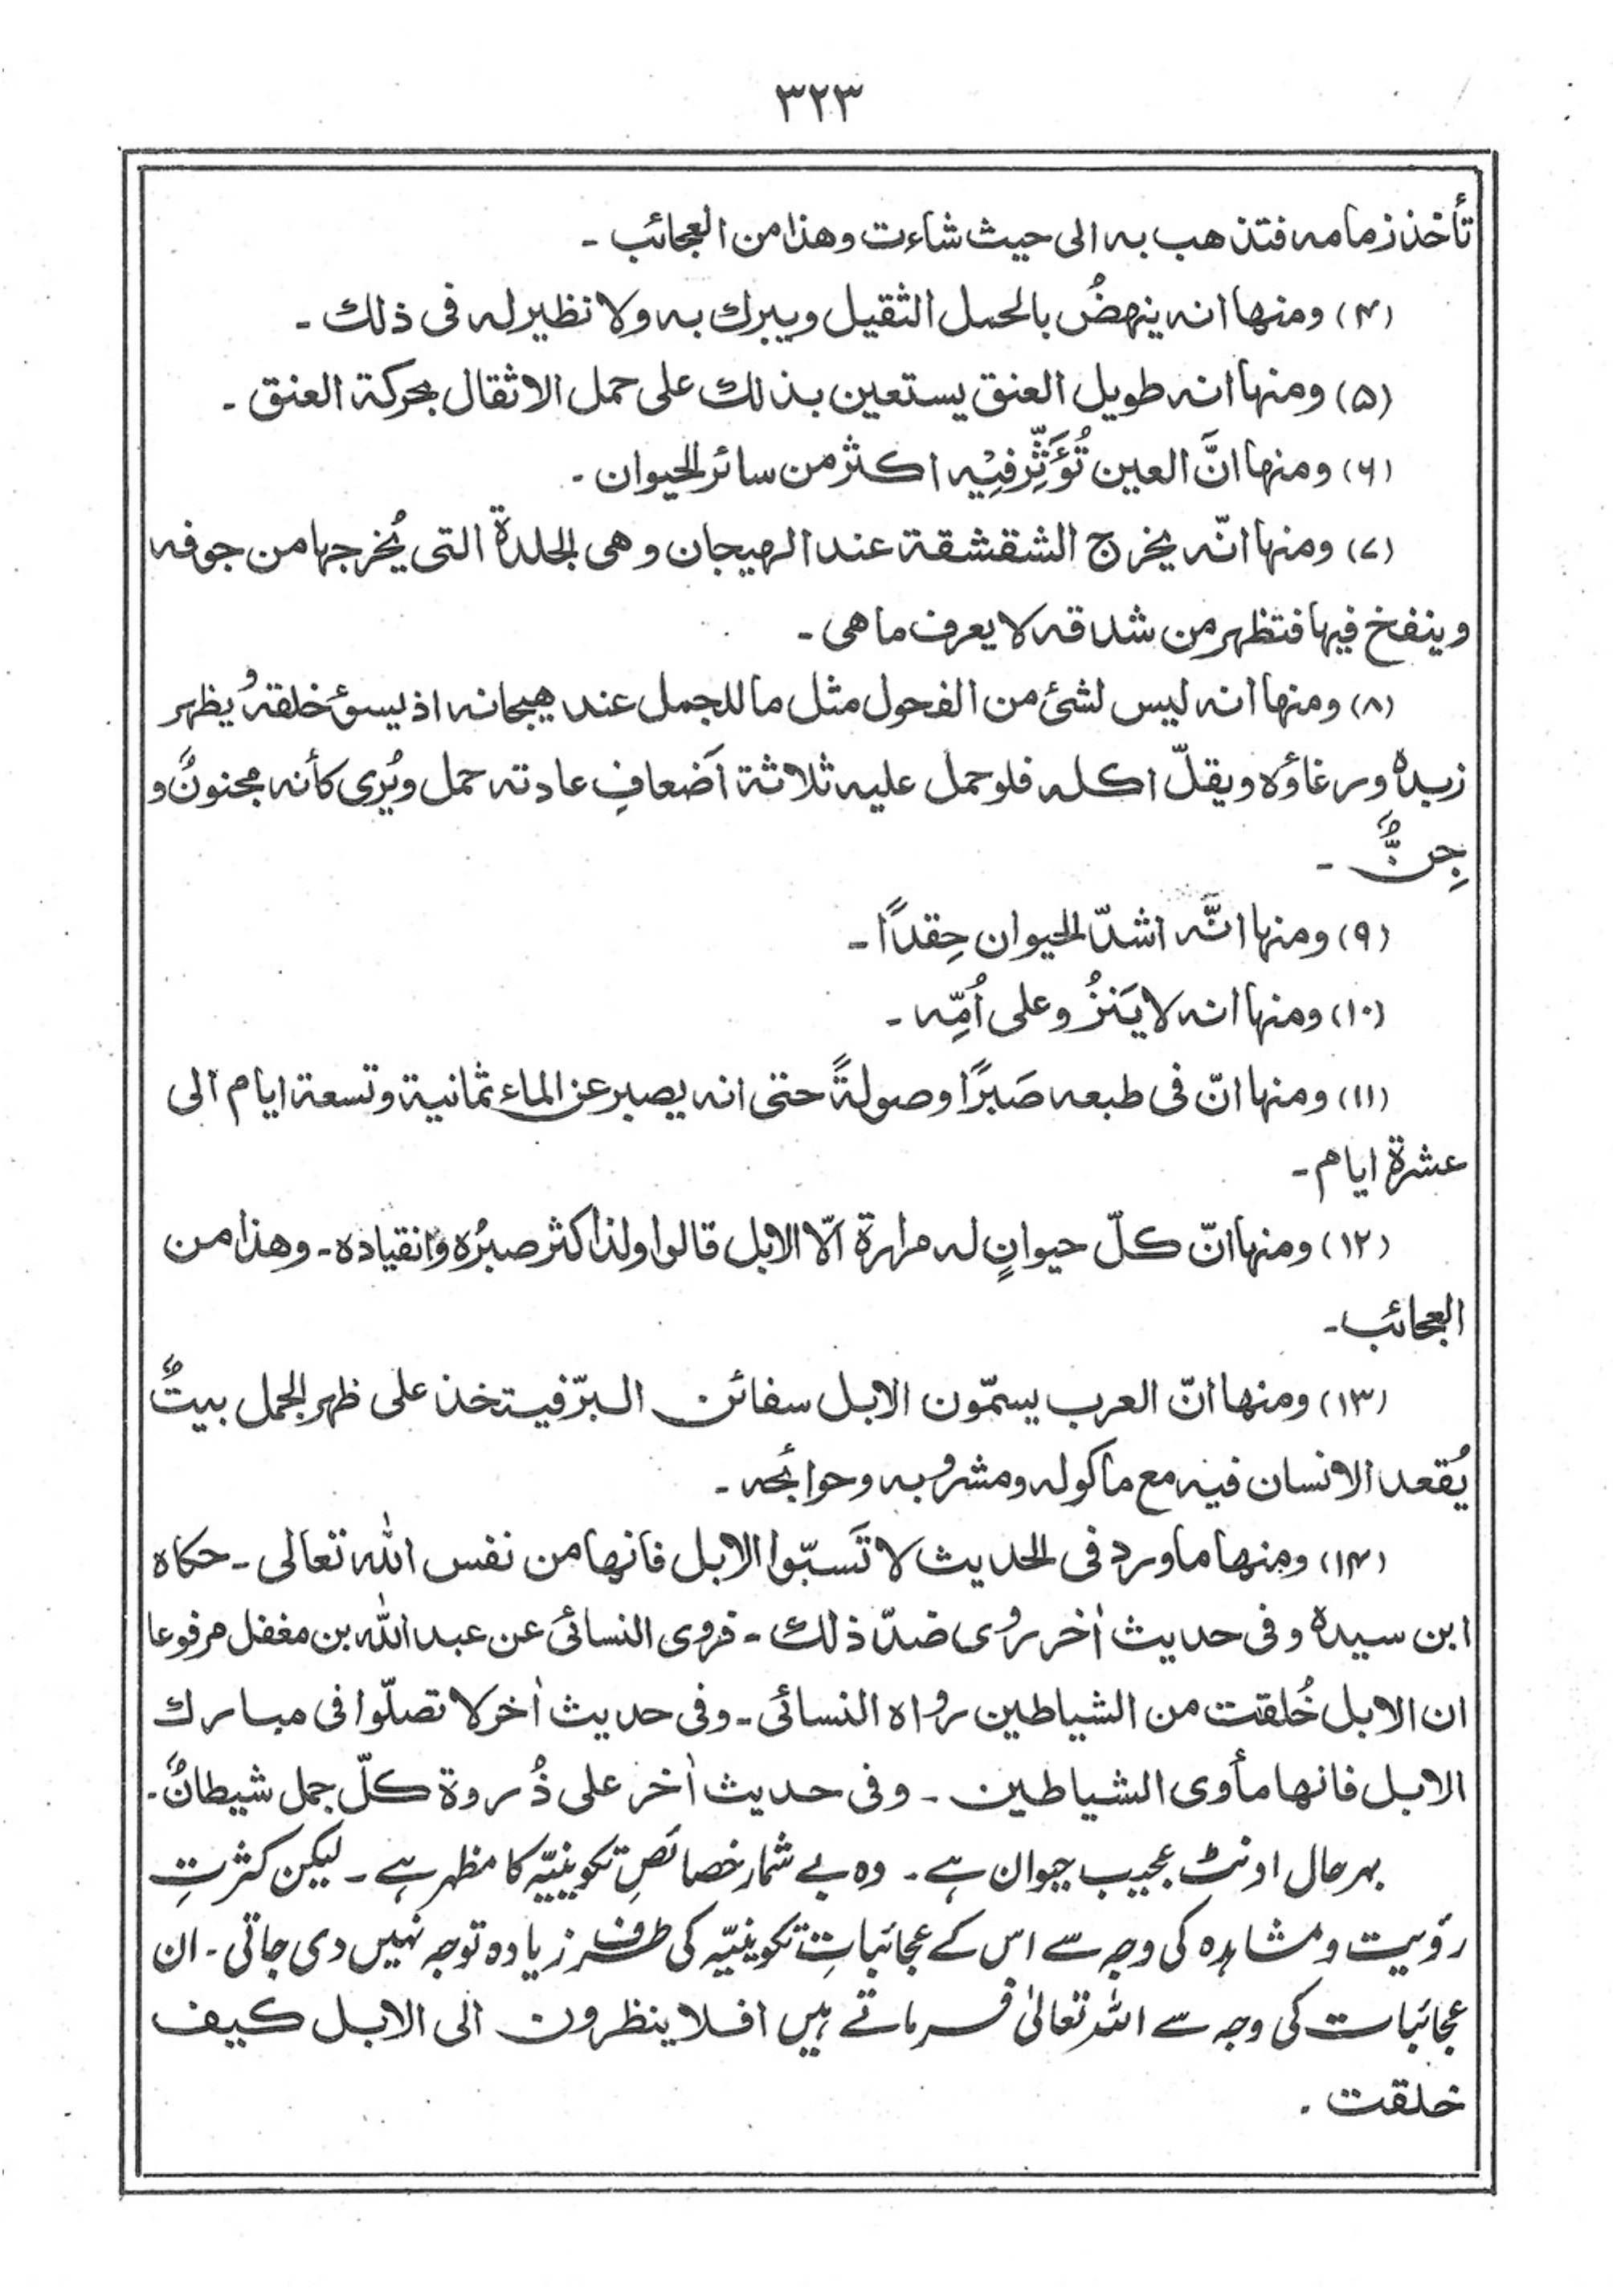 ٣٢٣
تأخذ زمامه فتذهب به الى حيث شاءت وهذا من العجائب ـ
(۴) ومنها انه ينهضُ بالحمل الثقيل ويبرك به ولا نظير له فى ذلك ـ
(۵) ومنها انه طويل العنق يستعين بذلك على حمل الاثقال بحركة العنق ـ
(۶) ومنها انَّ العين تُؤَثِّر فِيْه اكثر من سائر الحيوان ـ
(۷) ومنها انّه يخرج الشقشقة عند الهيجان وهى الجلدة التى يُخرجها من جوفه
وينفخ فيها فتظهر من شدقه لا يعرف ما هى ـ
(۸) ومنها انه ليس لشئ من الفحول مثل ما للجمل عند هيجانه اذ يسئ خلقهُ و يظهر
زبده ورغاؤه ويقلّ اكله فلو حمل عليه ثلاثة اَضعافِ عادته حمل ويُرى كأنه مجنونٌ و
جِنٌّ ـ
(۹) ومنها انَّه اشدّ الحيوان حِقدًا ـ
(۱۰) ومنها انه لا يَنزُو على اُمِّه ـ
(۱۱) ومنها انّ فى طبعه صَبرًا وصولةً حتى انه يصبر عن الماء ثمانية وتسعة ايام الى
عشرة ايام ـ
(۱۲) ومنها انّ كلّ حيوانٍ له مرارة الّا الابل قالوا ولذا كثر صبرُه وانقياده ـ وهذا من
العجائب ـ
(۱۳) ومنها انّ العرب يسمّون الابل سفائن البرّ فيتخذ على ظهر الجمل بيتٌ
يُقعد الانسان فيه مع ماكوله ومشروبه وحوائجه ـ
(۱۴) ومنها ما ورد فى الحديث لا تَسبّوا الابل فانها من نفس الله تعالى ـ حكاه
ابن سيده وفى حديث اٰخر روى ضدّ ذلك ـ فروى النسائى عن عبد الله بن مغفل مرفوعا
ان الابل خُلقت من الشياطين رواه النسائى ـ وفى حديث اٰخر لا تصلّوا فى مبارك
الابل فانها مأوى الشياطين ـ وفى حديث اٰخر على ذُروة كلّ جمل شيطانٌ ـ
بہرحال اونٹ عجیب حیوان ہے ـ وہ بے شمار خصائصِ تکوینیّہ کا مظہر ہے ـ لیکن کثرتِ
رؤیت و مشاہدہ کی وجہ سے اس کے عجائباتِ تکوینیّہ کی طرف زیادہ توجہ نہیں دی جاتی ـ ان
عجائبات کی وجہ سے اللہ تعالیٰ فرماتے ہیں افلا ينظرون الى الابل كيف
خلقت ـ